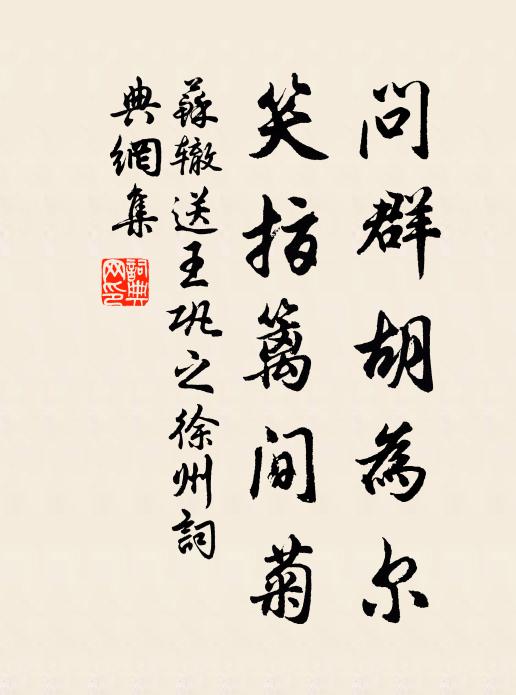 問群胡為尔
笑指篱間菊
蘇辙送王巩之徐州詞
典網集
詞典
网印